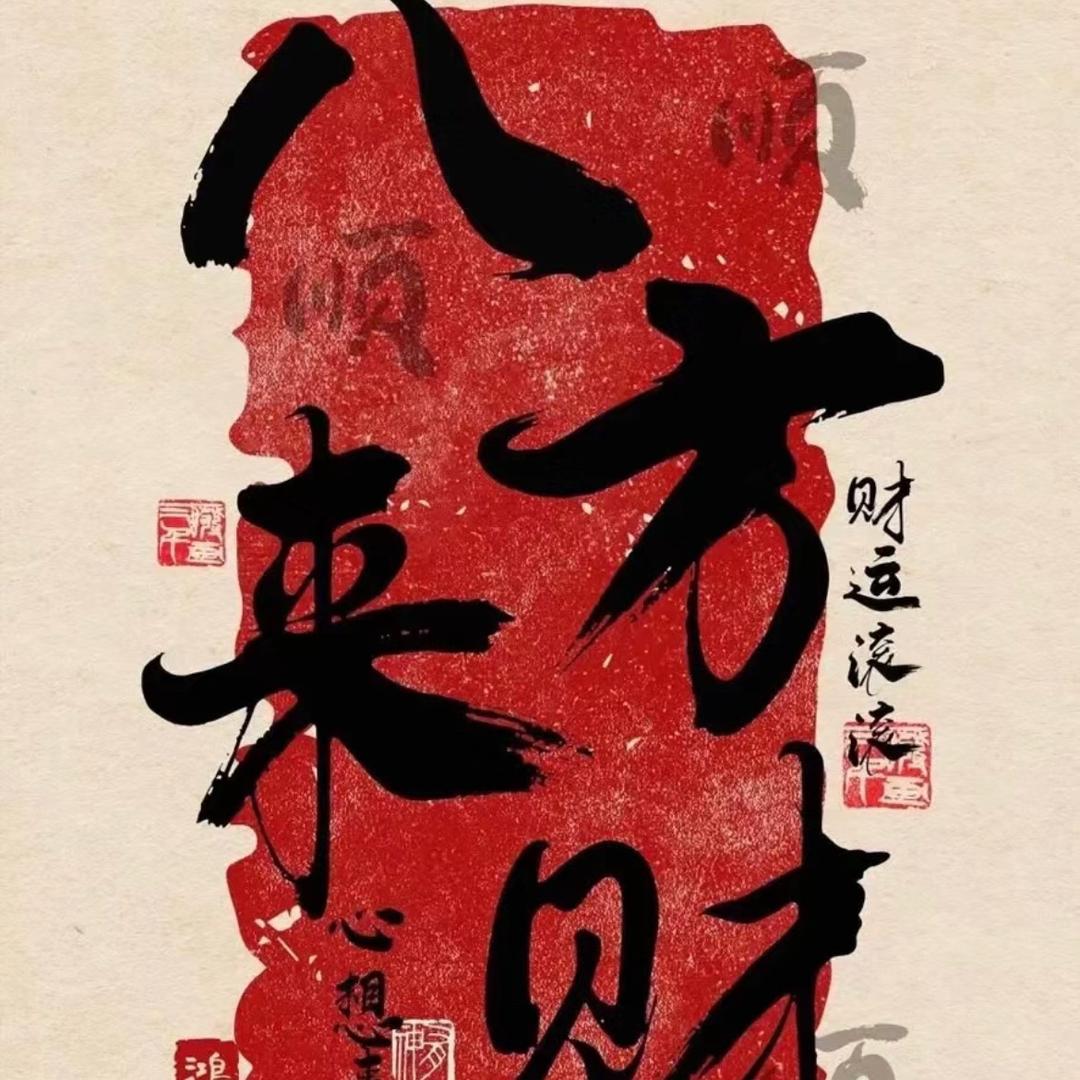 八方来财
顺
顺
财运滚滚
心想事
鸿